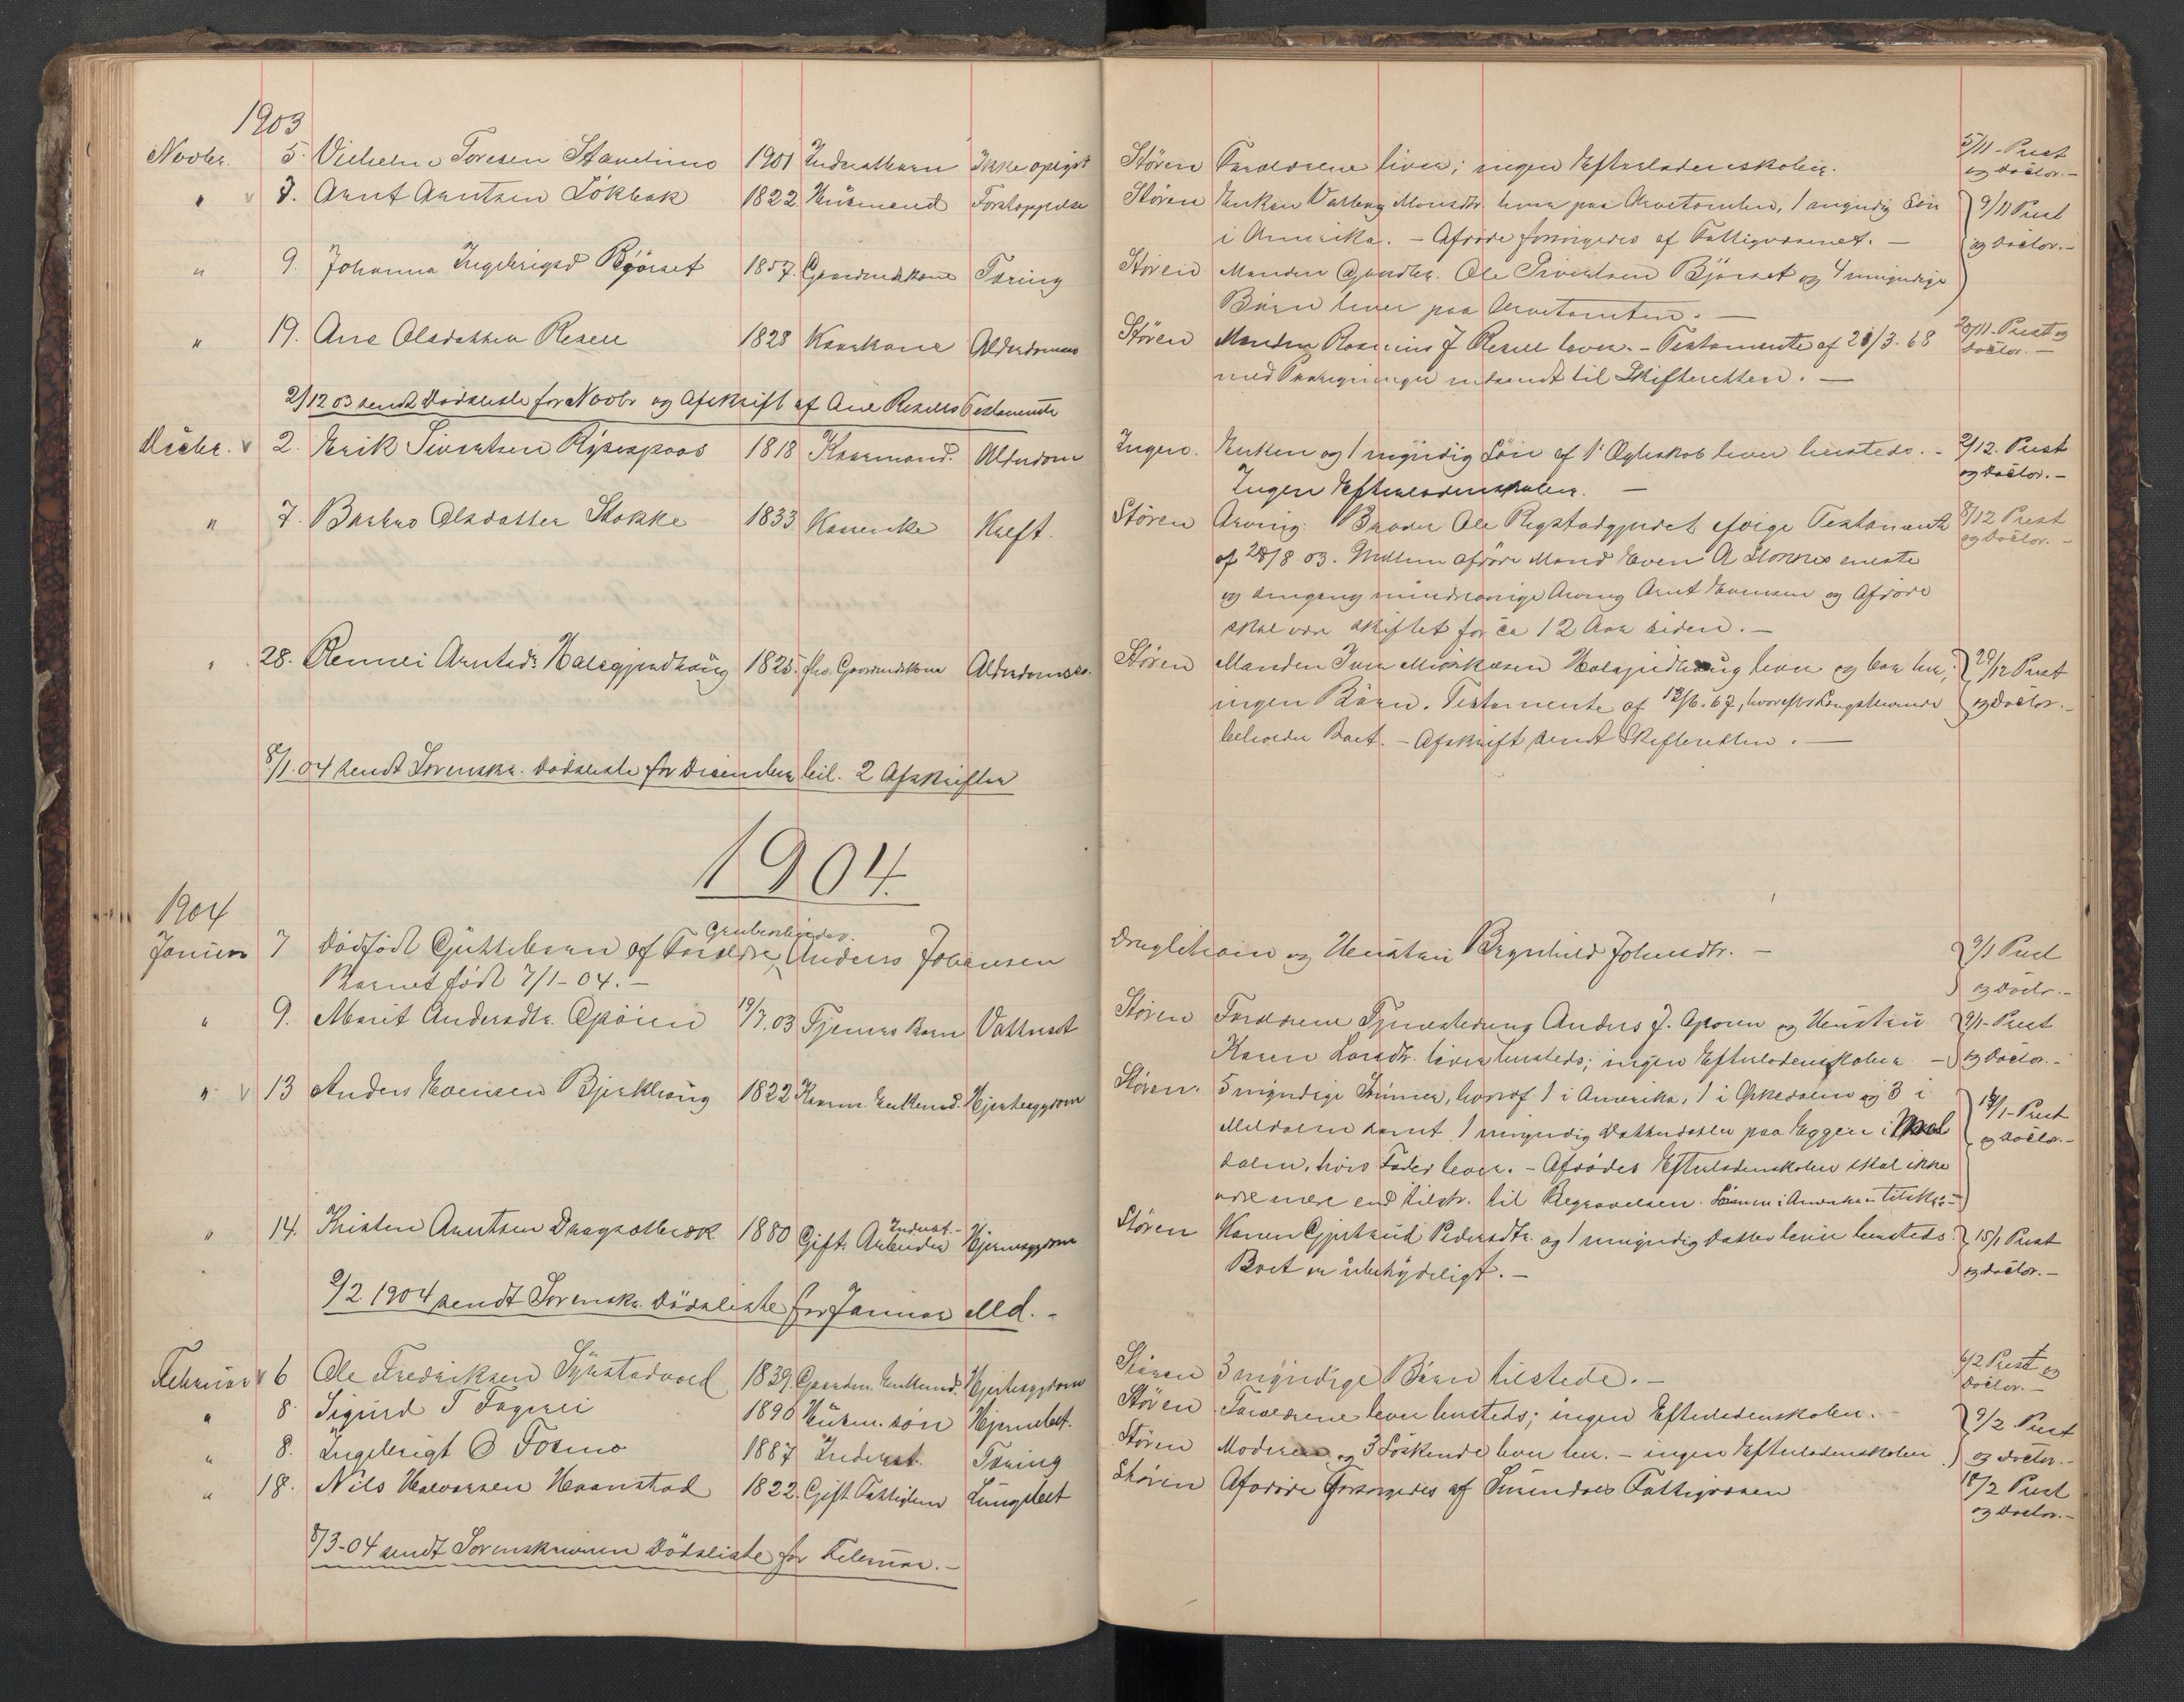 1903
Novbr. 5. Vilhelm Toresen Stavelimo 1901 Inderstbarn Ikke opgivt
" v 7. Arnt Arntsen Lökbak 1822 Husmand Forstoppelse
" 9. Johanna Ingebrigsd Bjørset 1857. Gaardmdskone Tæring
" 19. Ane Olsdatter Resell 1828 Kaarkone Alderdomss
2/12 03 sendt Dødsliste for Novbr og Afskrift af Ane Resells Testamente
Decbr. v 2. Erik Sivertsen 1818 Kaarmand. Alderdom
" 7. Barbro Olsdatter Stokke 1833 Kaarenke Kreft.
" 28. Rennei Arntsdr. Halsgjerdhaug 1825. fhv. Gaardmdskone Alderdomss.
8/1. 04 sendt Sorenskr. Dødsliste for December bil. 2 Afskrifter
1904.
1904
Grubearbeider.
Januar 7 Dødfødt Gjuttebarn af Forældre Anders Johansen
Barnet født 7/1-04. –
" 9. Marit Andersdtr. Aspöien 19/7. 03 Tjeners Barn Vattersot
" v 13 Anders Evensen Bjerkhaug 1822 Kaarm. Enkemd. Hjertesygdom
Inderst.
" 14. Kristen Arntsen Dragsetbæk 1880 Gift Arbeider Hjernesygdom
9/2 1904 sendt Sorenskr. Dødsliste for Januar Md. –
Februar v 6 Ole Fredriksen 1839. Gaardm. Enkemd. Hjertesygdom
" 8. Sigurd T Fagerli 1890 Husm. søn Hjernebet.
" 8. Ingebrigt O Formo 1887 Inderst. Tæring
" 18. Nils Halvorsen Haanstad 1822. Gift Fattiglem Lungebet
8/3-04 sendt Sorenskriveren Dødsliste for Februar. –
Støren Forældrene lever; ingen Efterladenskaber. 5/11 - Prest
og Doctor. –
Støren Enken Valborg Monsdtr. lever paa Arvetomten, 1 myndig Søn 9/11 Prest
i Amerika. – Afdøde forsørgedes af Fattigvæsenet. – og Doctor. –
Støren Manden Gaardbr. Ole Sivertsen Bjørset og 4 umyndige
Børn lever paa Arvetomten. –
Støren Manden Rasmus J Resell lever. – Testamente af 28/3. 68 20/11 - Prest og
Doctor. –
med Paategninger indsendt til Skifteretten. –
Ingen. Enken og 1 myndig Søn af 1ste Ægteskab lever hersteds. – 2/12. Prest
og Doctor. –
Ingen Efterladenskaber. –
Støren Arving: Broder Ole Rogstadgjerdet ifølge Testamente 8/12 Prest
og Doctor. –
af 28/8 03. Mellem afdøde Mand Even A Stokkes eneste
og dengang mindreaarige Arving Arnt Evensen og Afdøde
skal være skiftet for ca 12 Aar siden. –
Støren Manden Iver Halsgjerdhaug lever og bor her, 29/12 Prest
ingen Børn. Testamente af 13/6. 67, hvorefter Længstlevende og Doctor. –
beholder Boet. – Afskrift sendt Skifteretten. –
og Hustru Brynhild Johnsdtr. – 9/1 Prest
og Doctor. –
Støren Forældrene Tjenestedreng Anders J. Aspöien og Hustru 9/1 - Prest
Karen Larsdtr. lever hersteds; ingen Efterladenskaber – og Doctor. –
Støren. 5 myndige Sønner, hvoraf 1 i Amerika, 1 i Orkedalen og 3 i 14/1 - Prest
Meldalen samt 1 myndig Datterdatter paa Eggen i Mel og Doctor. –
dalen, hvis Fader lever. – Afdødes Efterladenskaber skal ikke
være mere end tilstr. til Begravelsen. Sønnen i Amerika
Støren Konen Gjertrud Pedersdtr. og 1 umyndig Datter lever hersteds. 15/1 Prest
Boet er ubetydeligt. – og Doctor. –
Støren 3 myndige Børn tilstede. – 6/2 Prest og
Doctor. –
Støren Forældrene lever hersteds; ingen Efterladenskaber. – 9/2 Prest
Støren Moderen og 3 Søskende lever her. – ingen Efterladenskaber og Doctor. –
Støren Afdøde forsørgedes af Fattigvæsen 18/2 Prest
og Doctor. –